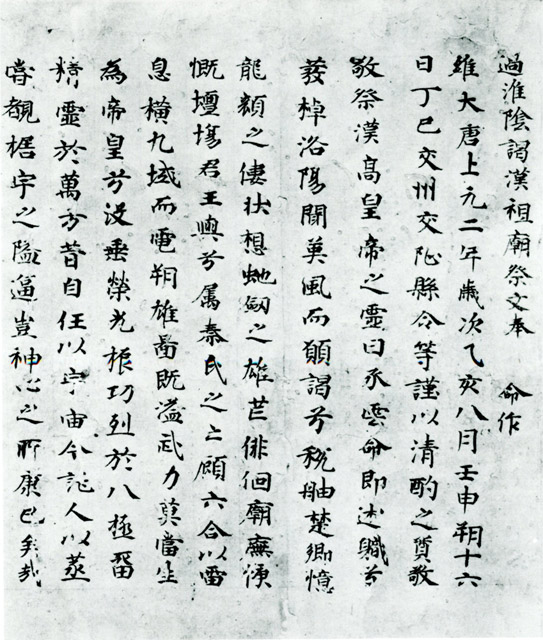 過淮陰謁漢祖廟祭文奉 命作
維大唐上元二年歲次乙亥八月壬申朔十六
日丁巳交州交阯縣令等謹以清酌之敬
敬祭漢高皇帝之靈曰命即述職兮
棹洛陽風而願謁兮稅舳楚鄉憶
龍顏之狀想虵劍之雄芒徘徊廟廡
慨壇場君王兮屬秦氏之亡顧六合以雷
息橫九域而電朔雄啚既溢武力莫當生
為帝皇兮沒垂榮光振功烈於八極留
精靈於萬方昔自任以宇宙今託人以蒸
嘗宇之隘逼豈神心之所康已矣哉